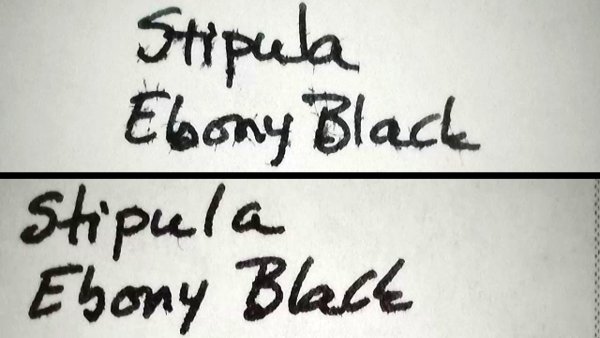 Stipula
Ebony Black
Stipula
Ebony Black